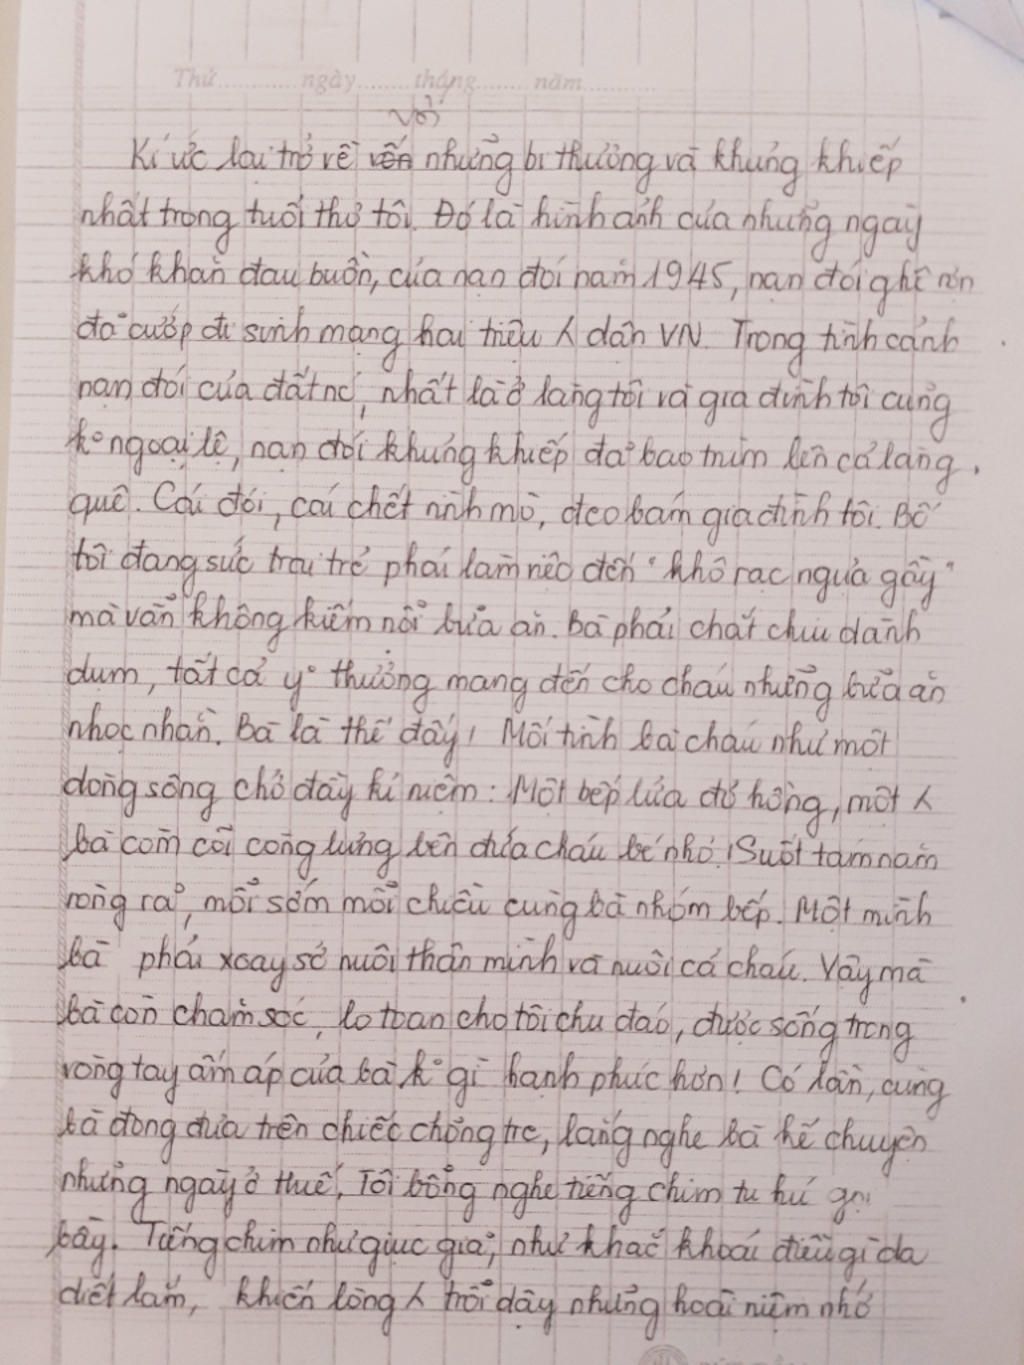 Thứ ngày tháng năm
với
Kí ức lại trở về vốn những bi thương và khủng khiếp
nhất trong tuổi thơ tôi. Đó là hình ảnh của những ngày
khó khăn đau buồn, của nạn đói năm 1945, nạn đói ghê rợn
đã cướp đi sinh mạng hai triệu ʎ dân VN. Trong tình cảnh
nạn đói của đất nc', nhất là ở làng tôi và gia đình tôi cũng
k° ngoại lệ, nạn đói khủng khiếp đã bao trùm lên cả làng
quê. Cái đói, cái chết rình mò, đeo bám gia đình tôi. Bố
tôi đang sức trai trẻ phải làm nẻo đến "khô rạc ngựa gầy"
mà vẫn không kiếm nổi bữa ăn. Bà phải chắt chiu dành
dụm, tất cả y° thương mang đến cho cháu những bữa ăn
nhọc nhằn. Bà là thế đấy! Mối tình bà cháu như một
dòng sông chở đầy kỉ niệm: Một bếp lửa đỏ hồng, một ʎ
bà còm cõi còng lưng bên đứa cháu bé nhỏ! Suốt tám năm
ròng rã, mỗi sớm mỗi chiều cùng bà nhóm bếp. Một mình
bà phải xoay sở nuôi thân mình và nuôi cả cháu. Vậy mà
bà còn chăm sóc, lo toan cho tôi chu đáo, được sống trong
vòng tay ấm áp của bà k° gì hạnh phúc hơn! Có lần, cùng
bà đong đưa trên chiếc chõng tre, lắng nghe bà kể chuyện
những ngày ở Huế, Tôi bỗng nghe tiếng chim tu hú gọi
bầy. Tiếng chim như giục giã, như khắc khoải điều gì da
diết lắm, khiến lòng ʎ trỗi dậy những hoài niệm nhớ